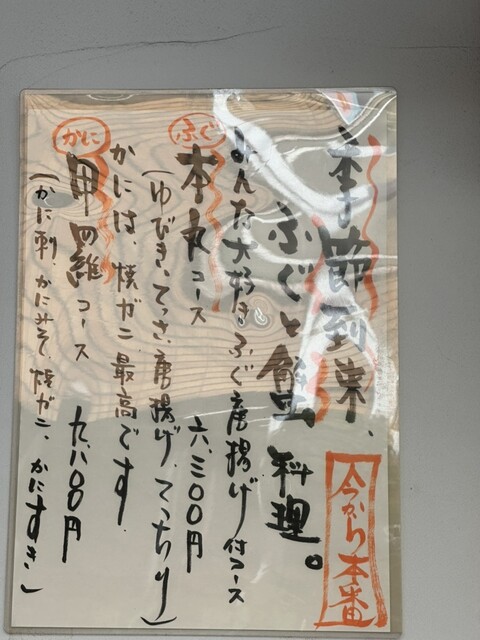 季節到来、
今から本番
ふぐと蟹料理。
みんな大好きふぐ唐揚げ付コース
ふぐ
本丸コース 六、三〇〇円
(ゆびき、てっさ、唐揚げ、てっちり)
かには、焼ガニ最高です
かに
甲羅コース 九八〇円
(かに刺、かにみそ、焼ガニ、かにすき)